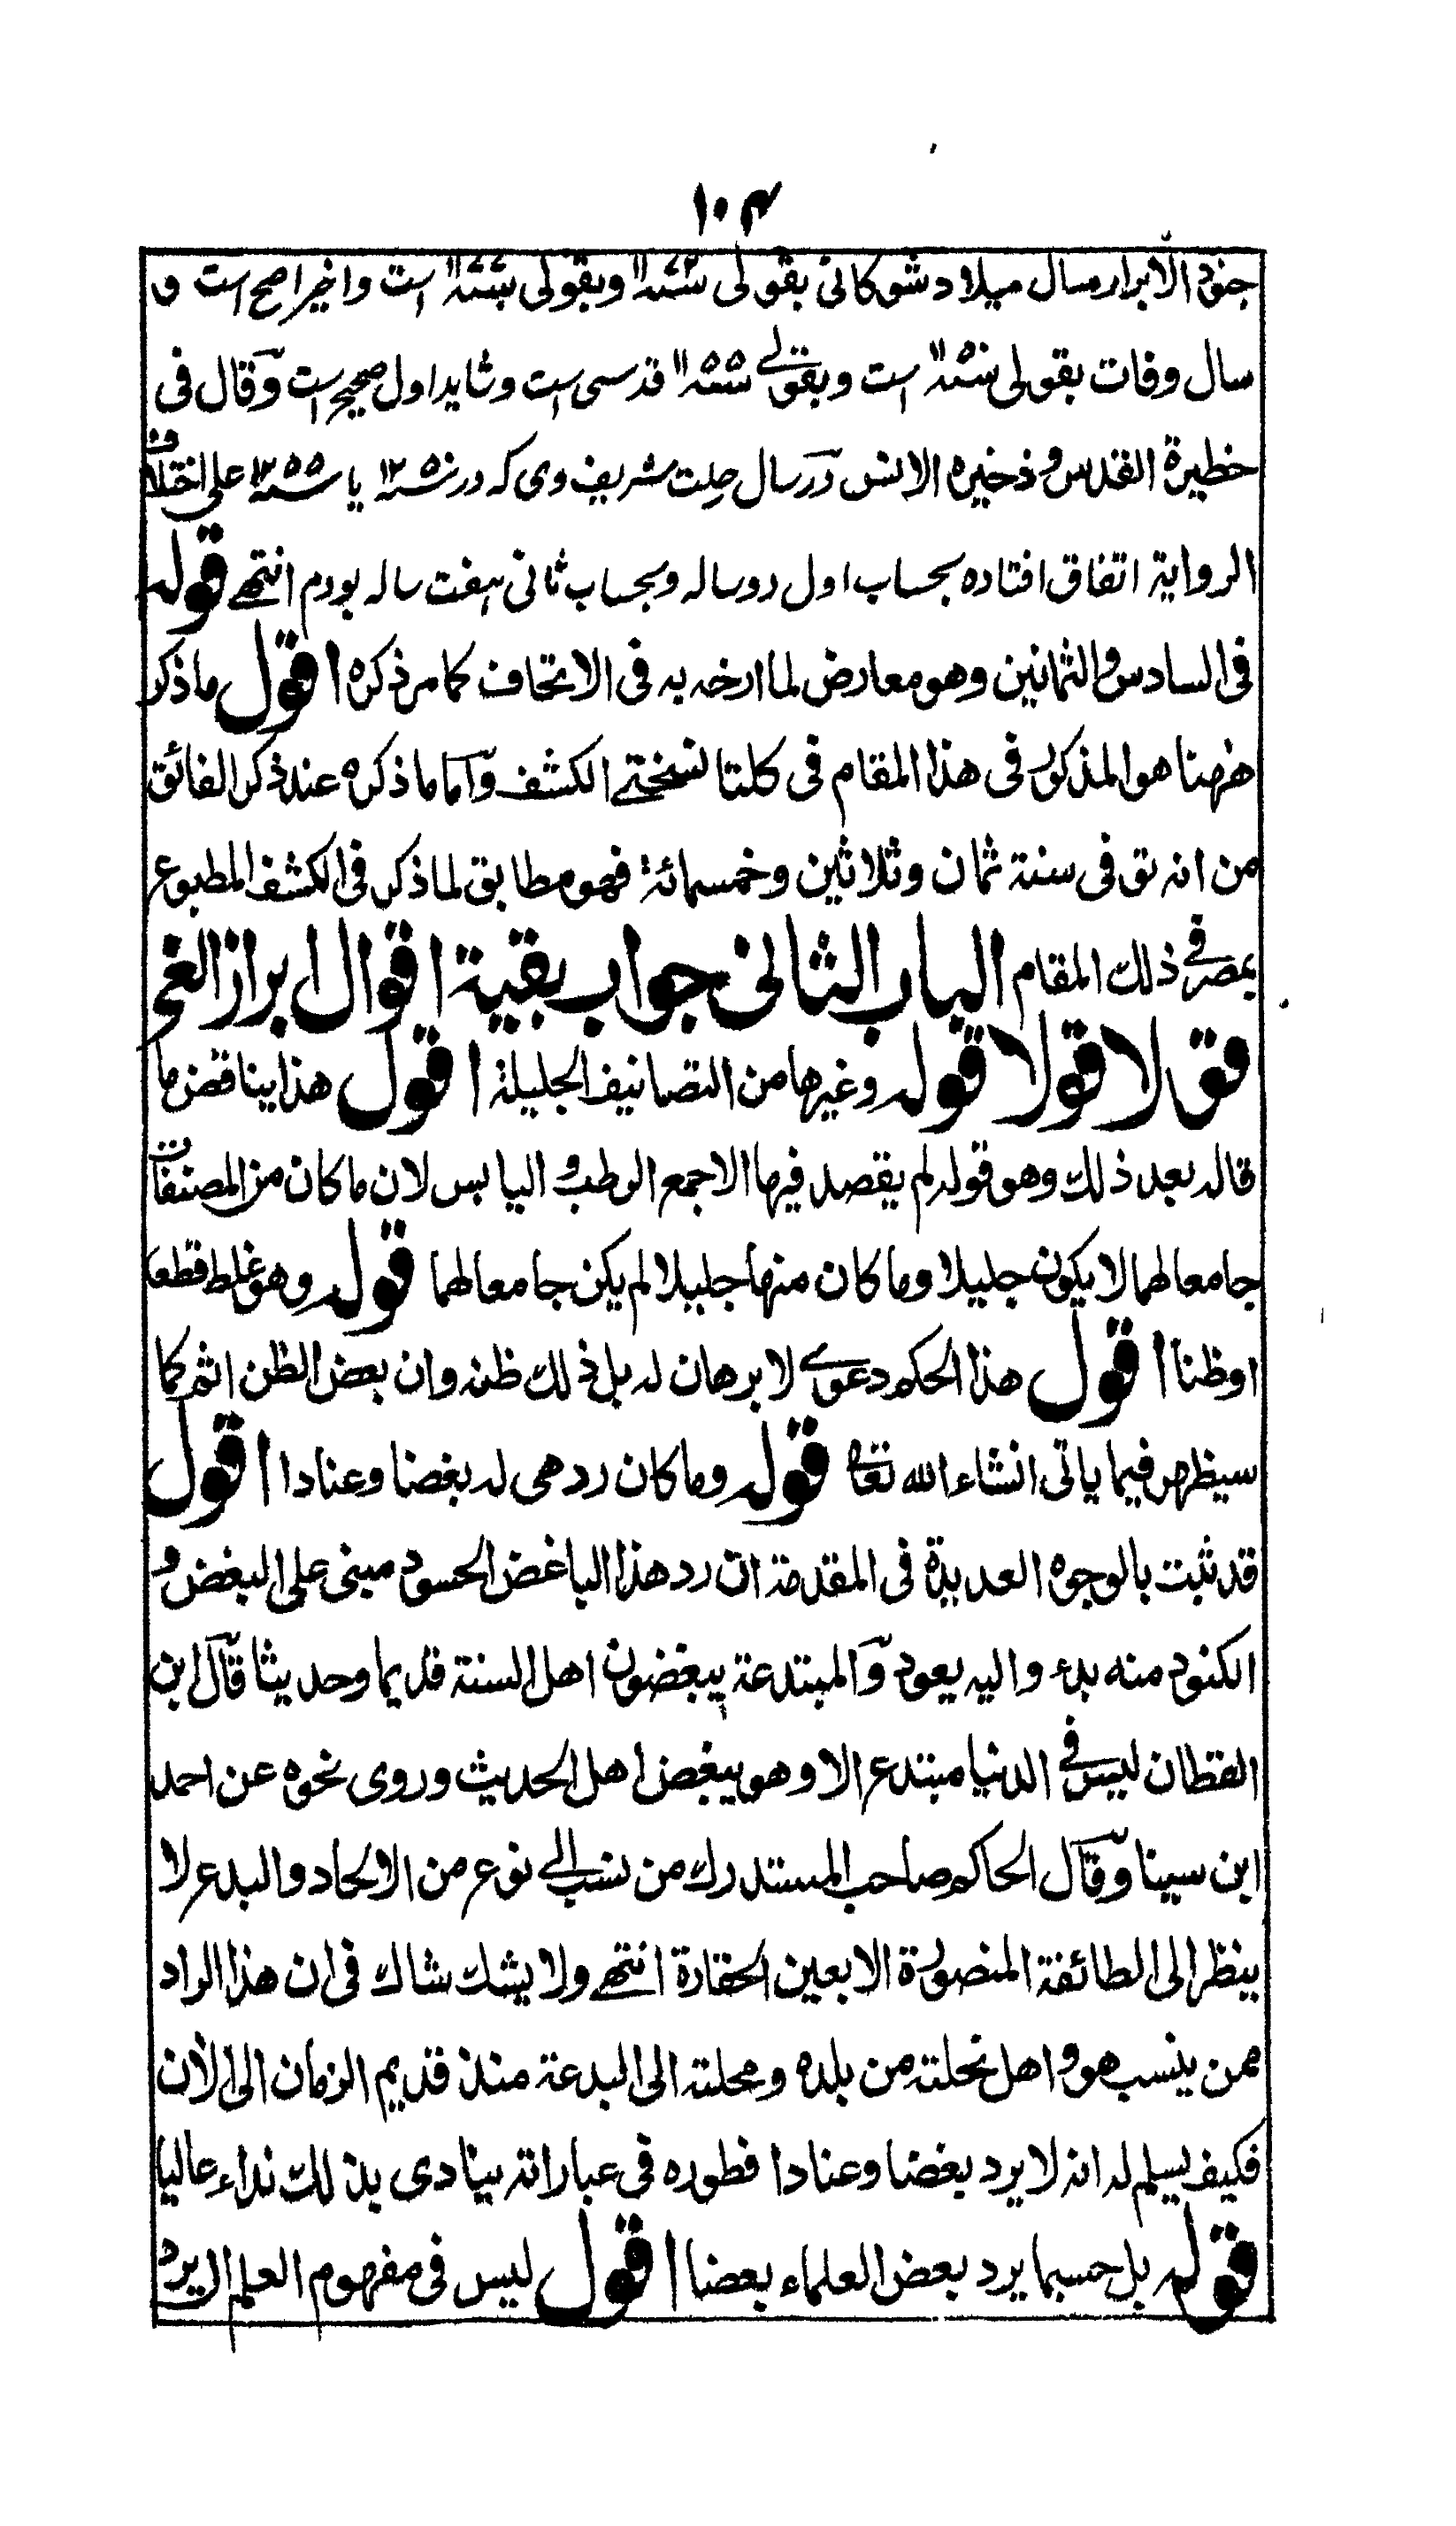 ١٠٤
جنود الابرار سال میلاد شوکانی بقولی ١١٧٢ وبقولی ١١٧٧ است واخیر اصح است و
سال وفات بقولی ١٢٥٠ است وبقولے ١٢٥٥ قدسی است وشاید اول صحیح است وقال فی
حظیرة القدس وذخیره الانس در سال رحلت شریف وی که در ١٢٥٠ یا ١٢٥٥ علی اختلاف
الروایة اتفاق افتاده بحساب اول دوساله وبحساب ثانی هفت ساله بودم انتهے قوله
فی السادس والثمانین وهو معارض لما ارخه به فی الاتحاف کما مر ذکره اقول ما ذکر
ههنا هو المذکور فی هذا المقام فی کلتا نسختے الکشف واما ما ذکره عند ذکر الفائق
من انه توفی سنة ثمان وثلاثین وخمسمائة فهو مطابق لما ذکر فی الکشف المطبوع
بمصر فے ذلك المقام الباب الثانی جواب بقیة اقوال ابراز الغی
قولا قولا قوله وغیرها من التصانیف الجلیلة اقول هذا یناقض ما
قاله بعد ذلك وهو قوله لم یقصد فیها الا جمع الرطب و الیابس لان ما کان من المصنفات
جامعا لهما لا یکون جلیلا وما کان منها جلیلا لم یکن جامعا لهما قوله وهو غلط قطعا
او ظنا اقول هذا الحکم دعوے لا برهان له بل ذلك ظنه وان بعض الظن اثم کما
سیظهر فیما یاتی انشاء الله تعالی قوله وما کان ردهی له بغضا وعنادا اقول
قد ثبت بالوجوه العدیدة فی المقدمة ان رد هذا الباغض الحسود مبنی علی البغض و
الکنود منه بدء والیه یعود والمبتدعة یبغضون اهل السنة قدیما وحدیثا قال ابن
القطان لیس فے الدنیا مبتدع الا وهو یبغض اهل الحدیث وروی نحوه عن احمد
ابن سینا وقال الحاکم صاحب المستدرك من نسب الے نوع من الالحاد والبدع لا
ینظر الی الطائفة المنصورة الا بعین الحقارة انتهے ولا یشك شاك فی ان هذا الراد
ممن ینسب هو و اهل نحلته من بلده ومحلته الی البدعة منذ قدیم الزمان الی الأن
فکیف یسلم له انه لا یرد بغضا وعنادا فطوره فی عباراته ینادی بذلك نداء عالیا
قوله بل حسبما یرد بعض العلماء بعضا اقول لیس فی مفهوم العلم الا یرد